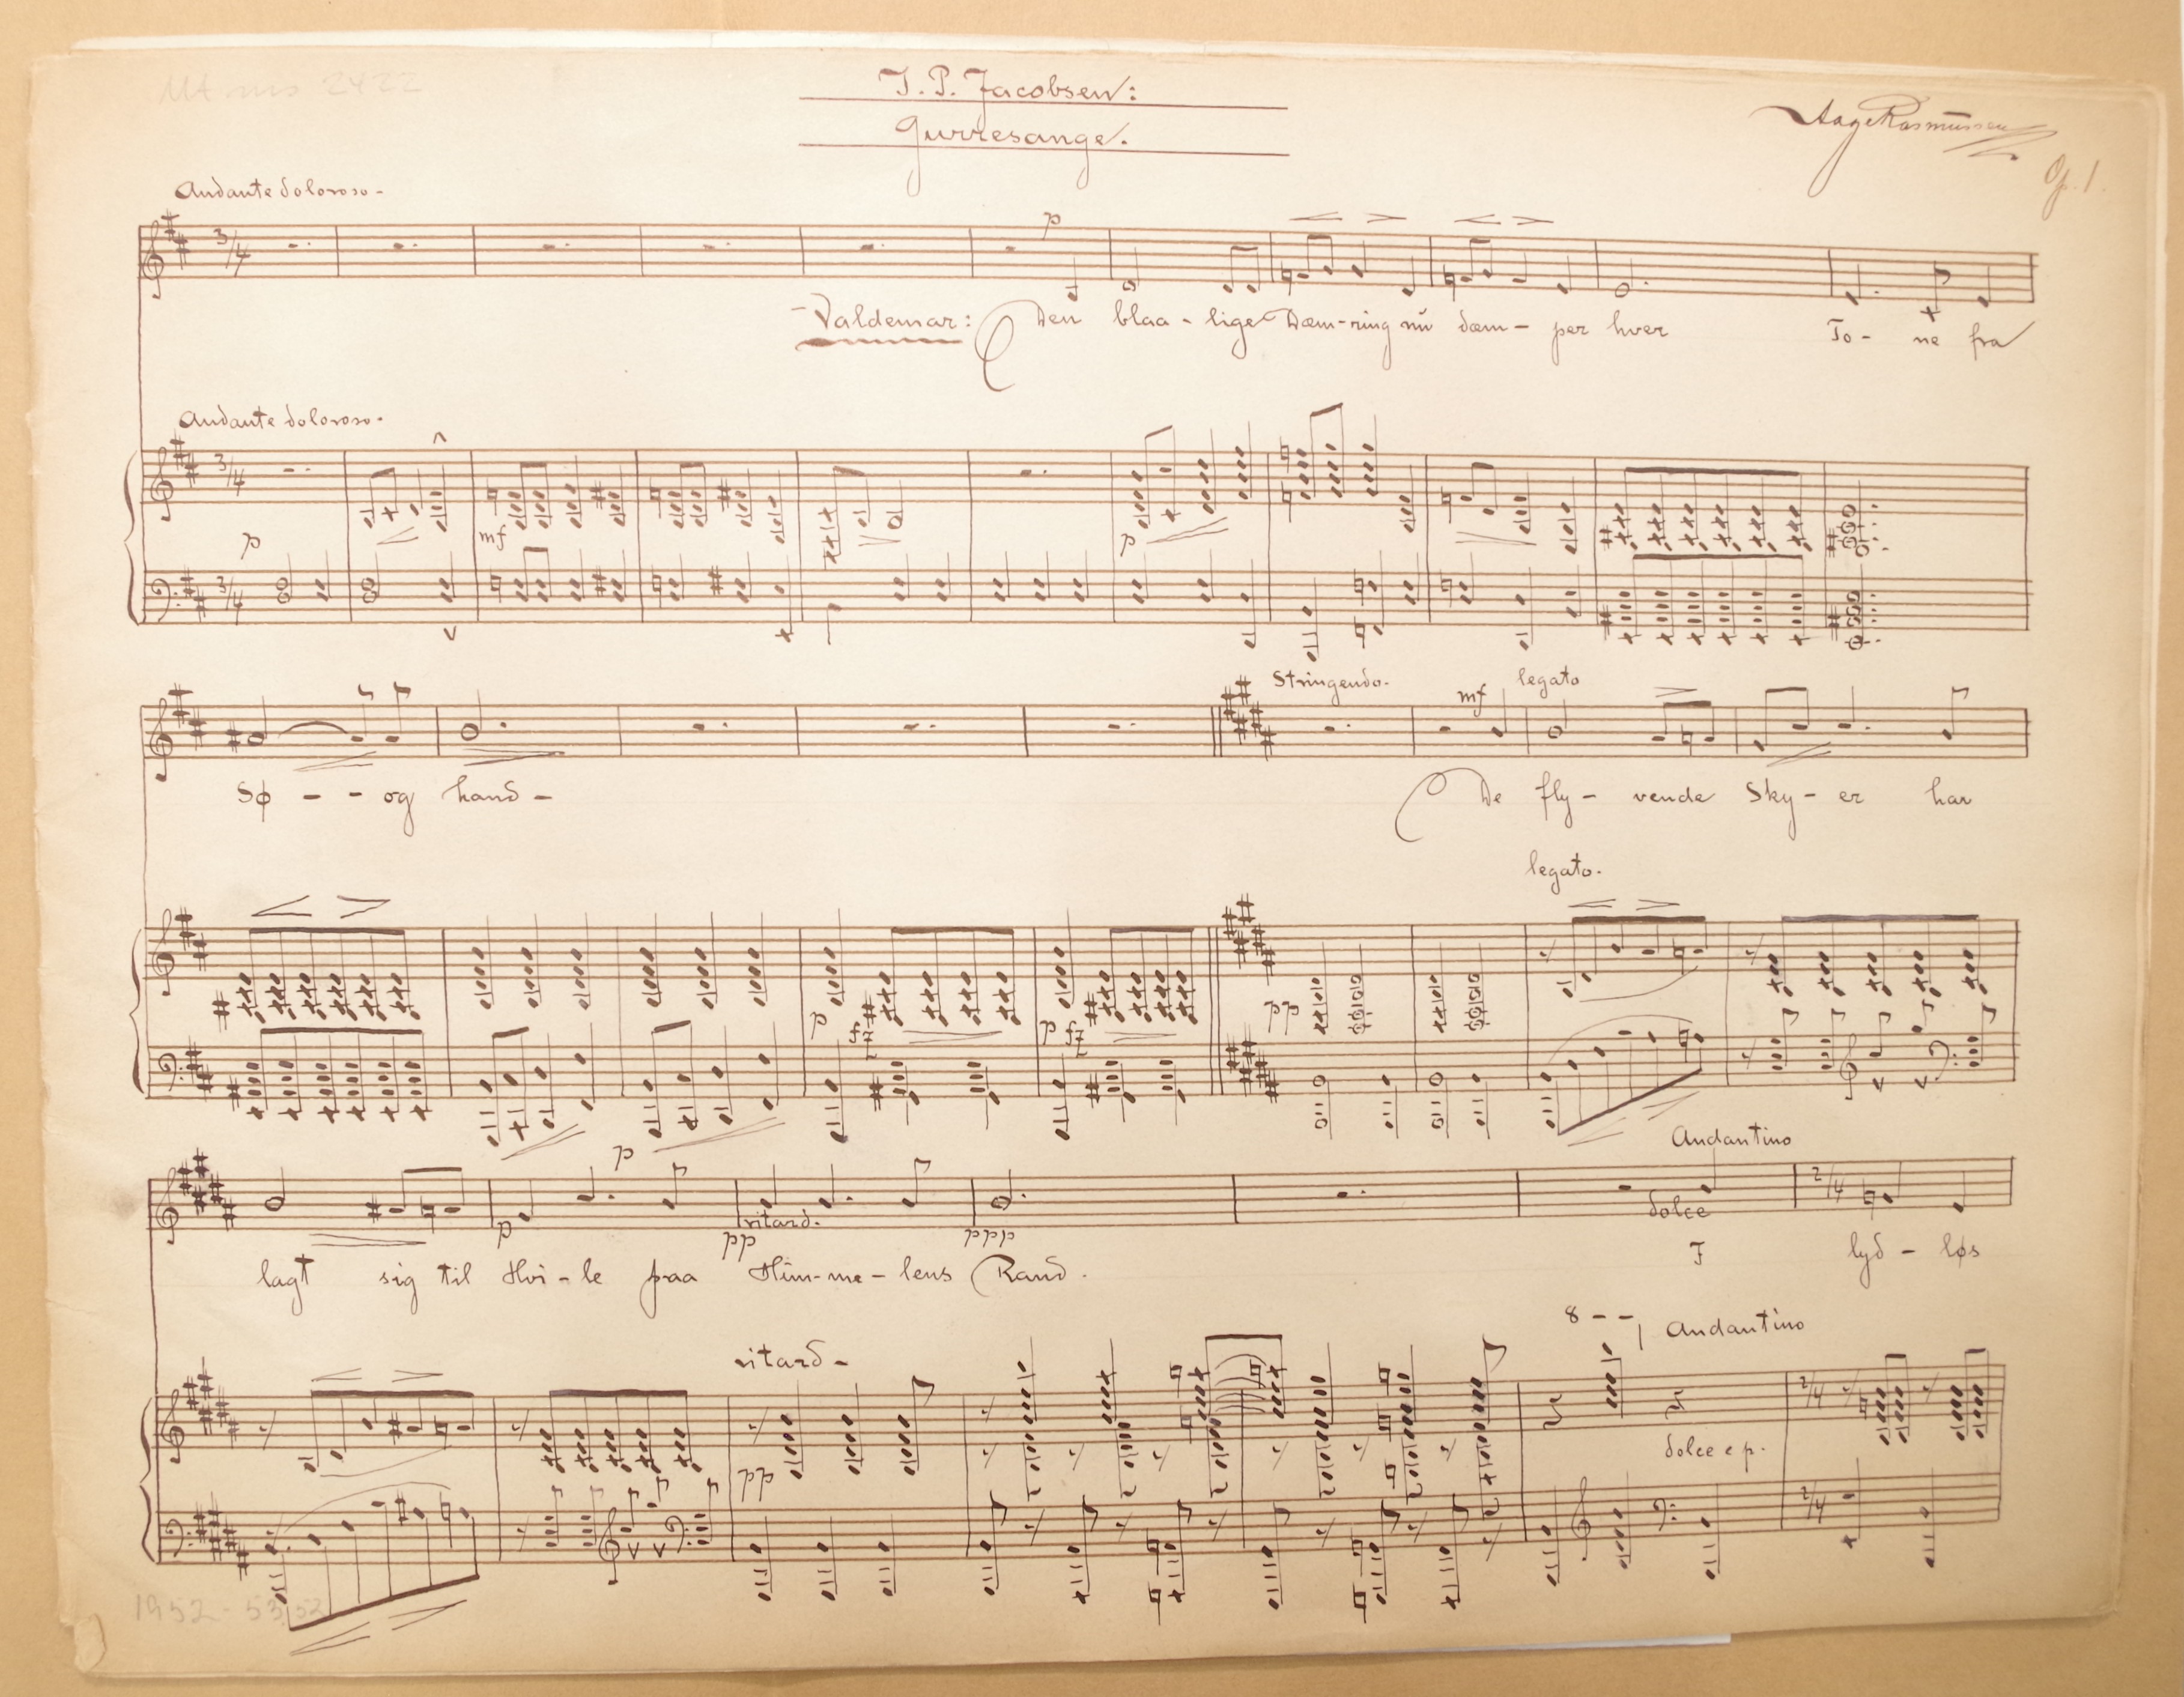 Mt ms 2422
J. P. Jacobsen:
Gurresange.
Aage Rasmussen
Op. 1.
Andante doloroso-
3/4
p
Valdemar: Den blaa - lige Dæm-ring nu dæm - per hver To - ne fra
Andante doloroso.
3/4
p mf p
3/4
Stringendo. mf legato
Sø - - og Land - De fly - vende Sky - er har
legato.
p fz p fz pp
p
Andantino
p ritard. pp ppp dolce 2/4
lagt sig til Hvi - le paa Him-me - lens Rand. I lyd - løs
8 - - Andantino
ritard -
pp dolce e p. 2/4
2/4
1952-53.52